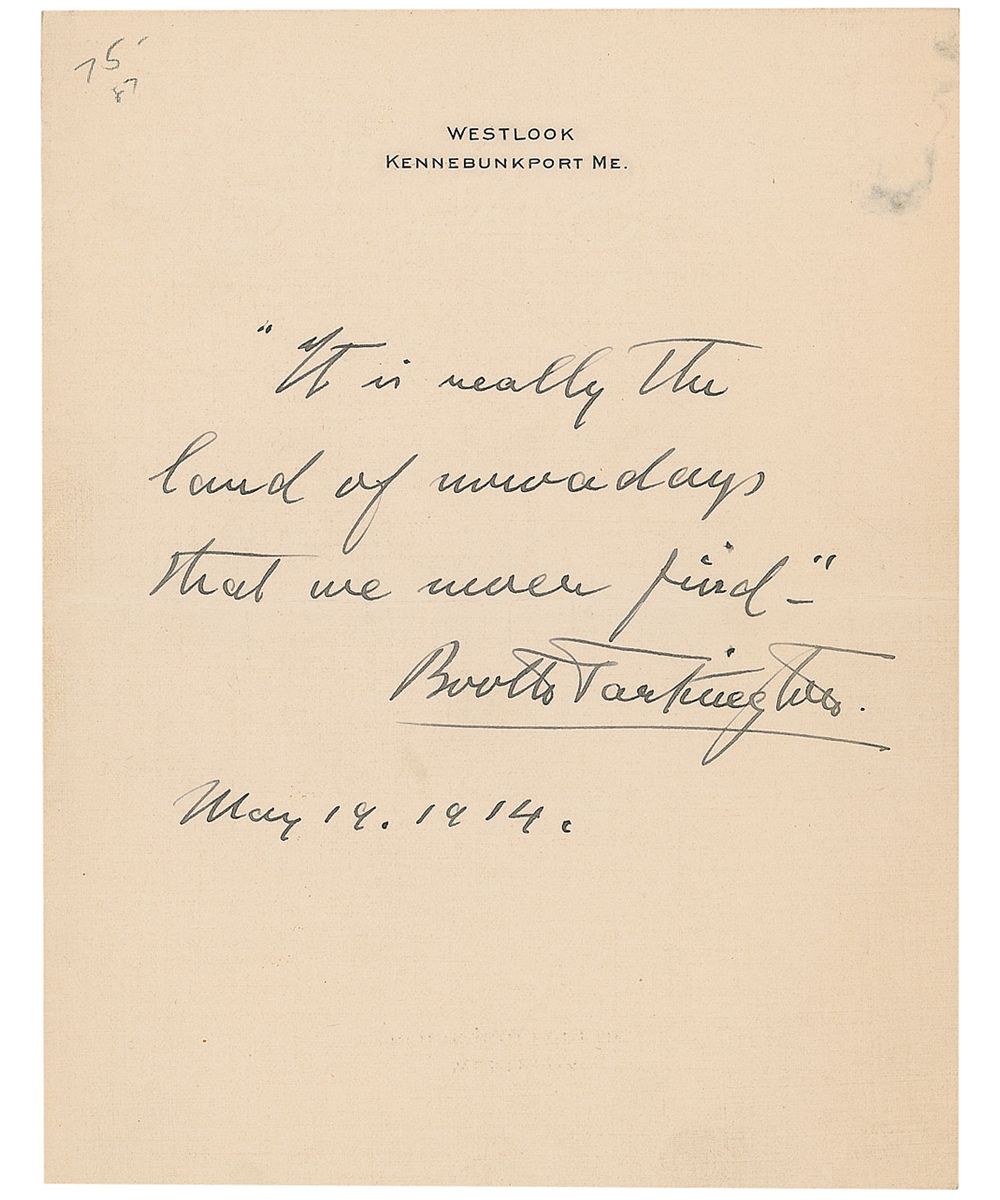 75
87
WESTLOOK
KENNEBUNKPORT ME.
"It is really the
land of nowadays
that we never find—"
Booth Tarkington.
May 19. 1914.